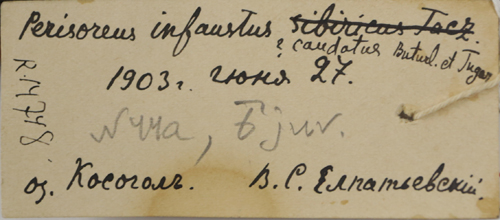 Perisoreus infaustus sibiricus Tacz.
? caudatus Buturl. et Tugar.
1903 г. июня 27.
N 44a, juv.
оз. Косоголъ. В.С. Елпатьевскій.
R.1478